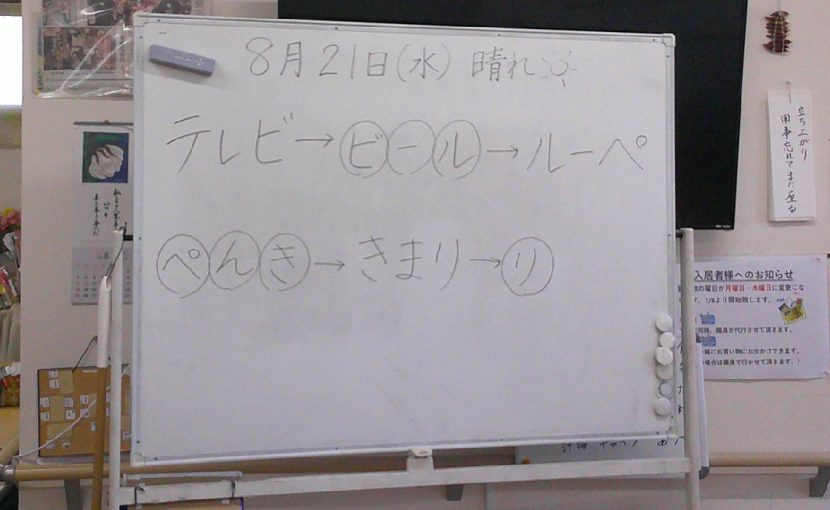 8月21日(水) 晴れ
テレビ→ビール→ルーペ
ぺんき→きまり→り
立ち上がり
用事忘れてまた座る
入居者様へのお知らせ
の曜日が月曜日・木曜日に変更にな
す。7/8より開始致します。
職員が代行させて頂きます。
緒にお買い物にお出かけできます。
場合は職員で行かせて頂きます。!
8